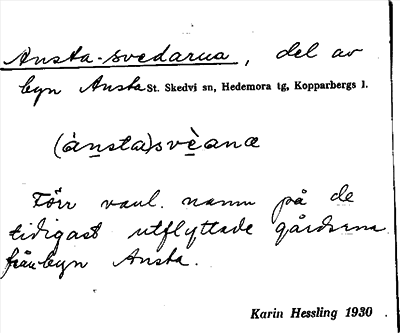 Ansta-svedarna, del av
byn Ansta St. Skedvi sn, Hedemora tg, Kopparbergs l.
(ànsta)svèanæ
Förr vanl. namn på de
tidigast utflyttade gårdarna
från byn Ansta.
Karin Hessling 1930